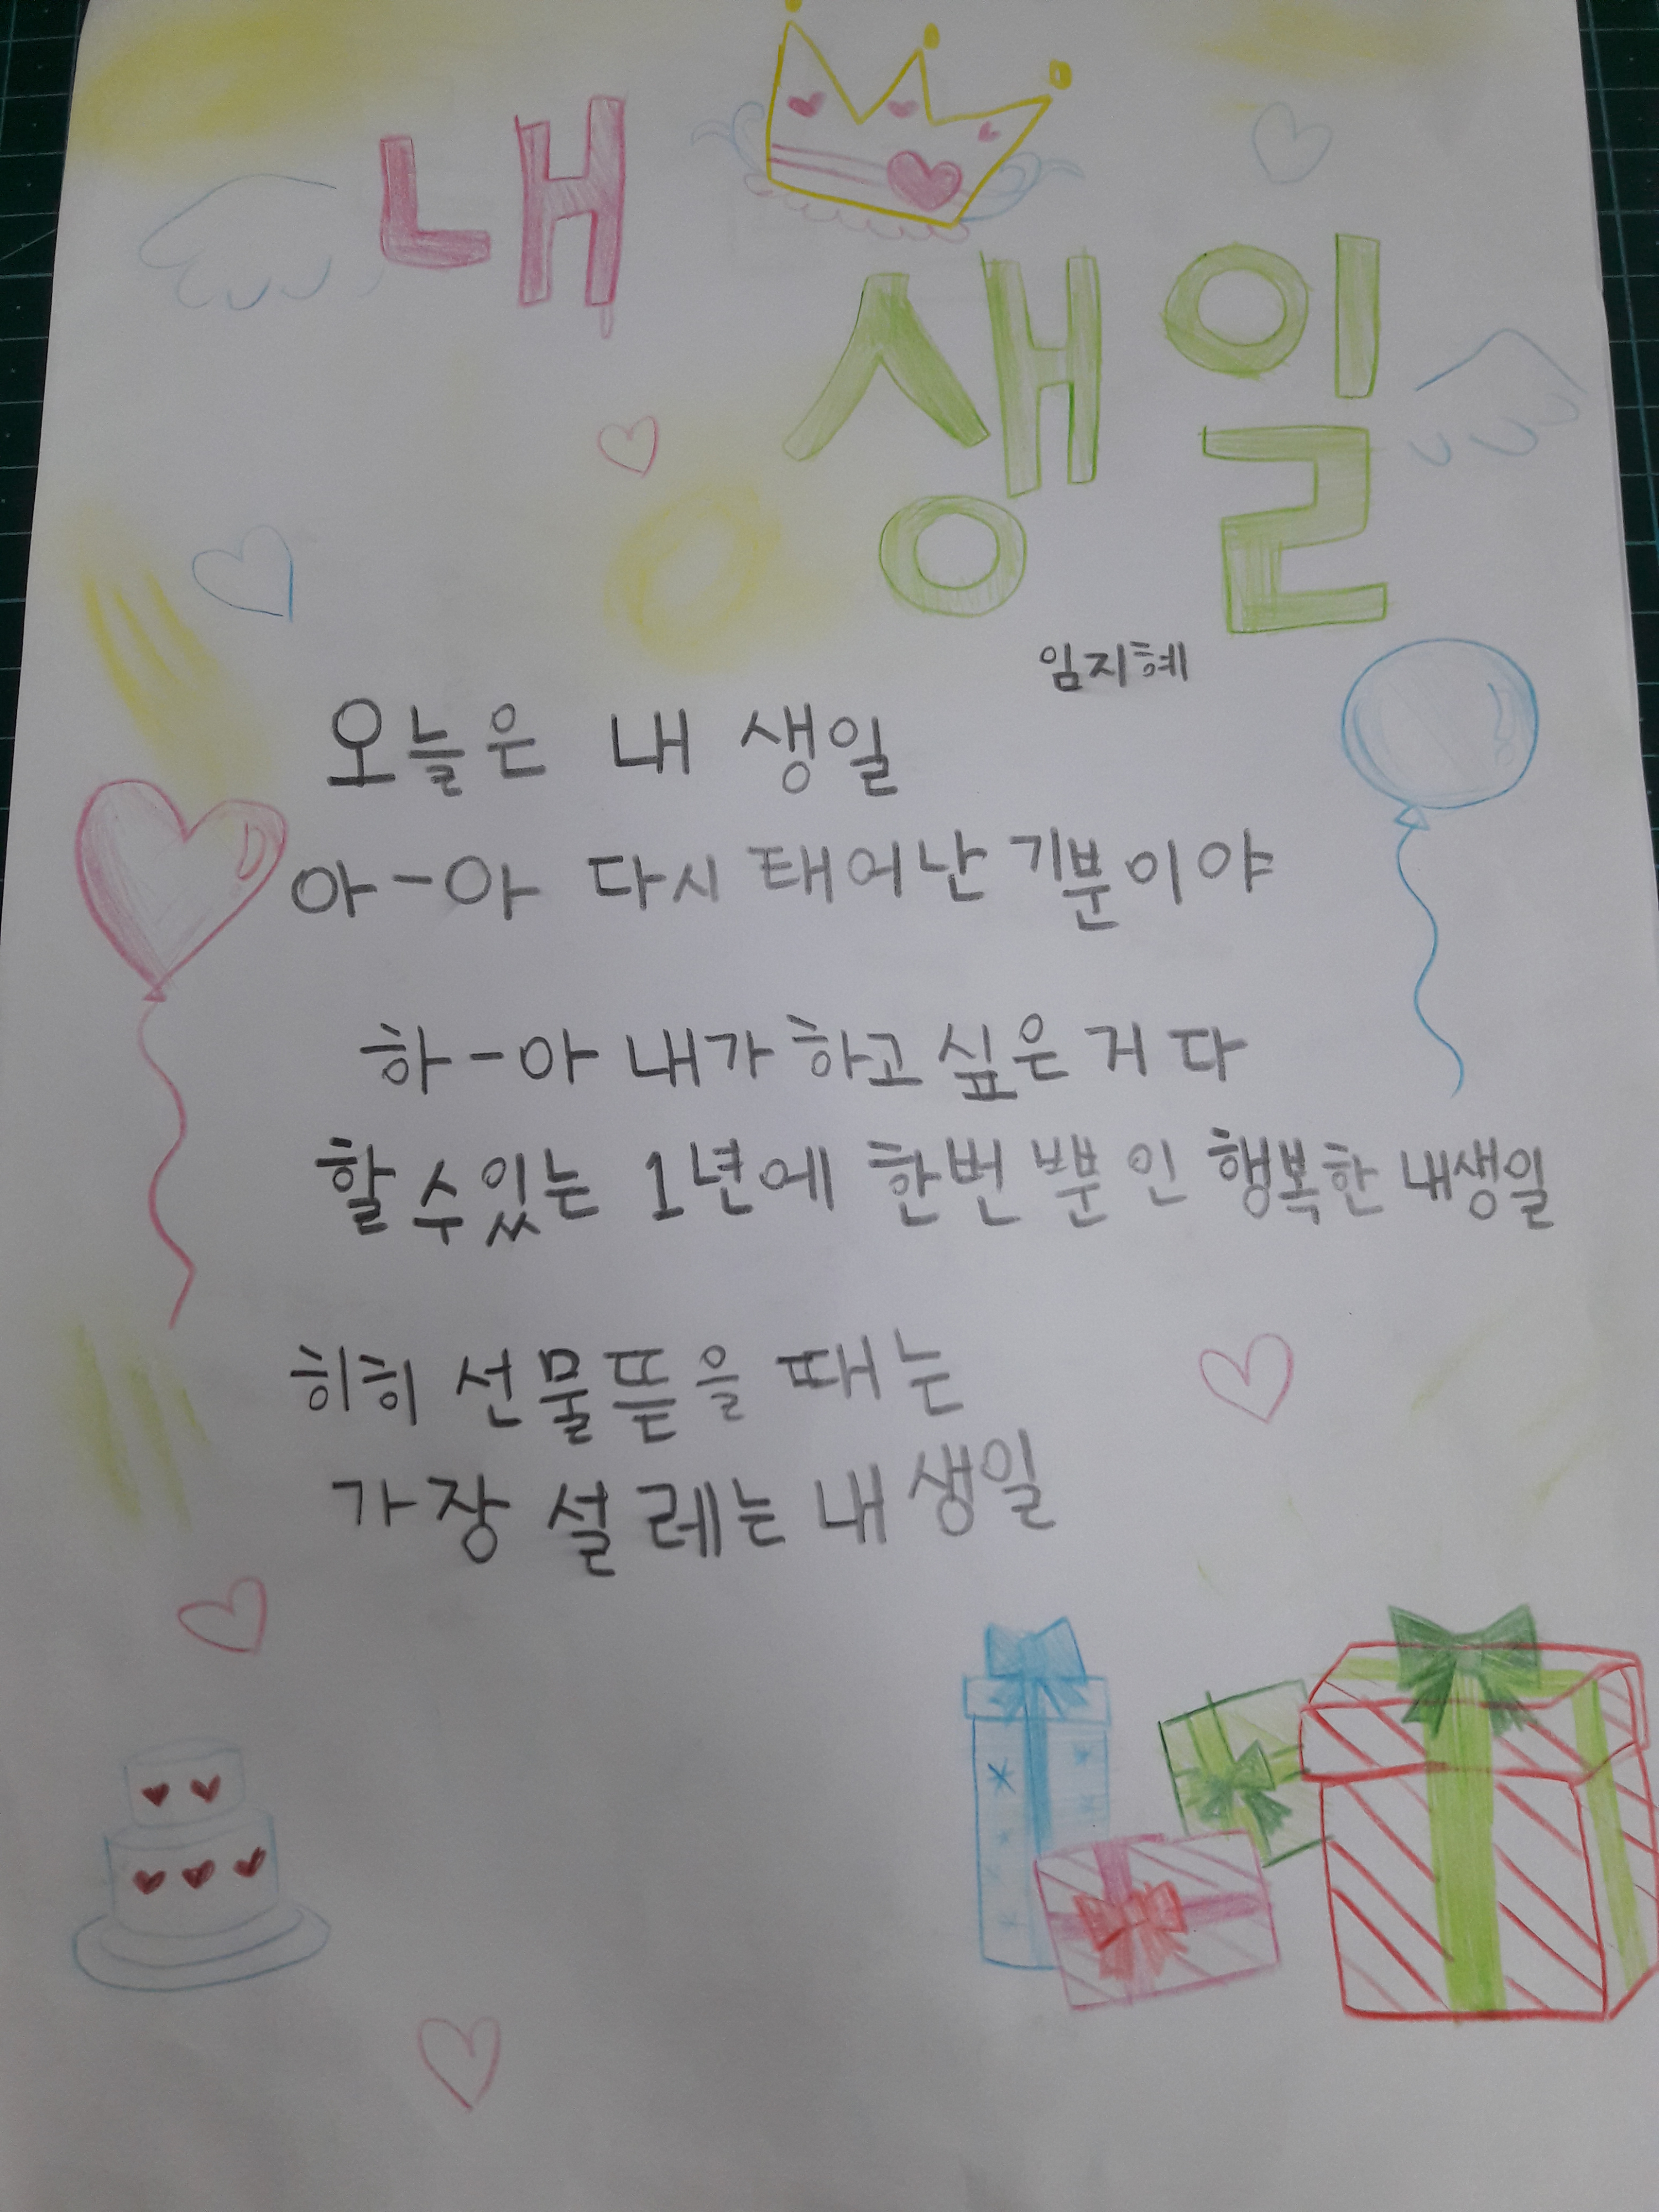 내
생일
임지혜
오늘은 내 생일
아-아 다시 태어난 기분이야
하-아 내가 하고 싶은 거 다
할 수 있는 1년에 한번 뿐인 행복한 내생일
히히 선물뜯을 때는
가장 설레는 내 생일